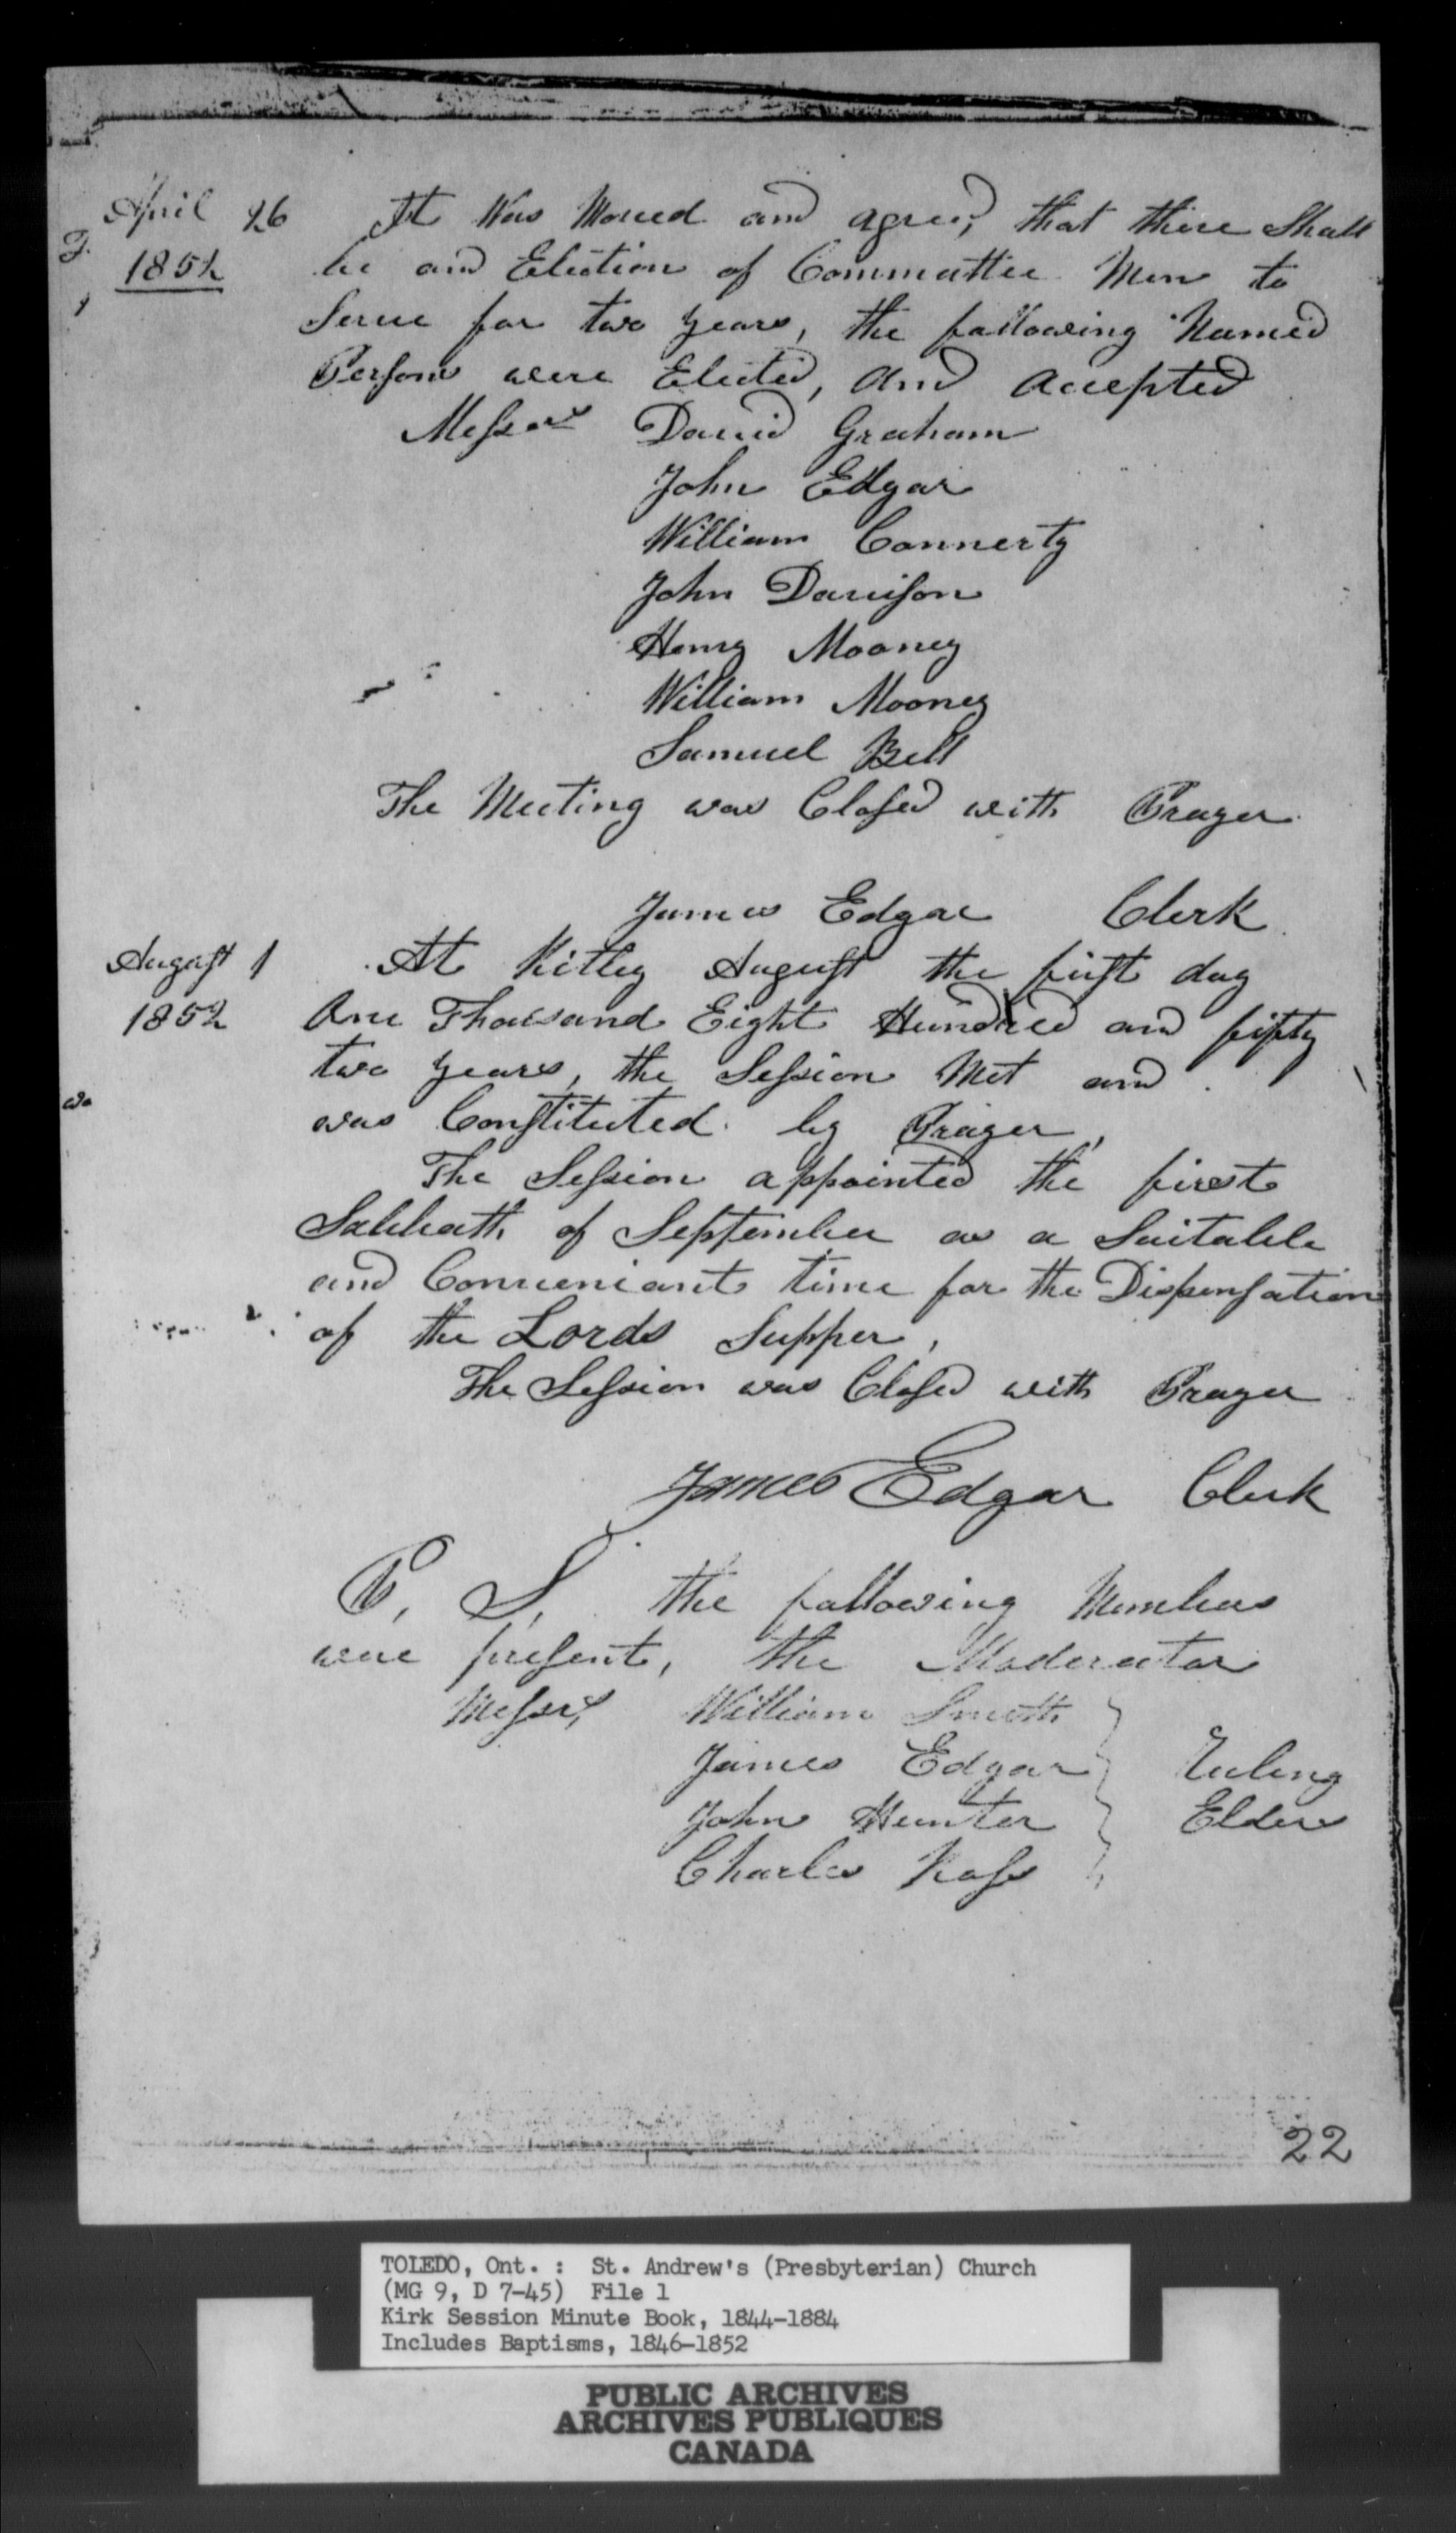 April 26 It Was Moved and agreed, that there Shall
1852 be and Election of Committee Men to
Serve for two years, the following Named
Persons were Elected, And Accepted
Messrs David Graham
John Edgar
William Connerty
John Davison
Henry Mooney
William Mooney
Samuel Bell
The Meeting was Closed with Prayer
James Edgar Clerk
August 1 At Kitley August the first day
1852 One Thousand Eight Hundred and fifty
two years, the Session Met and
was Constituted by Prayer,
The Session appointed the first
Sabbath of September as a Suitable
and Conveniant time for the Dispensation
of the Lords Supper,
The Session was Closed with Prayer
James Edgar Clerk
P, S, the following Members
were present, the Moderator
Messrs William Smith
James Edgar Ruling
John Hunter Elders
Charles Ross
22
TOLEDO, Ont. : St. Andrew's (Presbyterian) Church
(MG 9, D 7-45) File 1
Kirk Session Minute Book, 1844-1884
Includes Baptisms, 1846-1852
PUBLIC ARCHIVES
ARCHIVES PUBLIQUES
CANADA